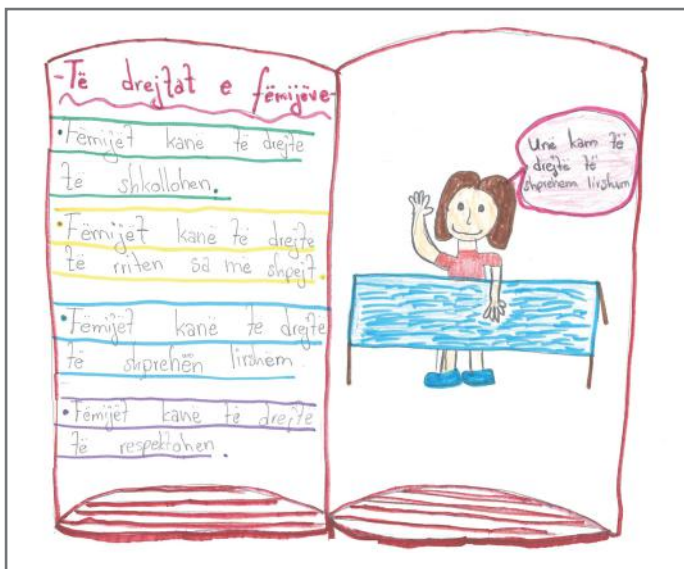 -Të drejtat e fëmijëve-
• Fëmijët kanë të drejte
të shkollohen.
• Fëmijët kanë të drejte
të rriten sa më shpejt.
• Fëmijët kanë te drejte
të shprehën lirshëm
• Fëmijët kanë të drejte
të respektohen.
Unë kam të
drejtë të
shprehem lirshum